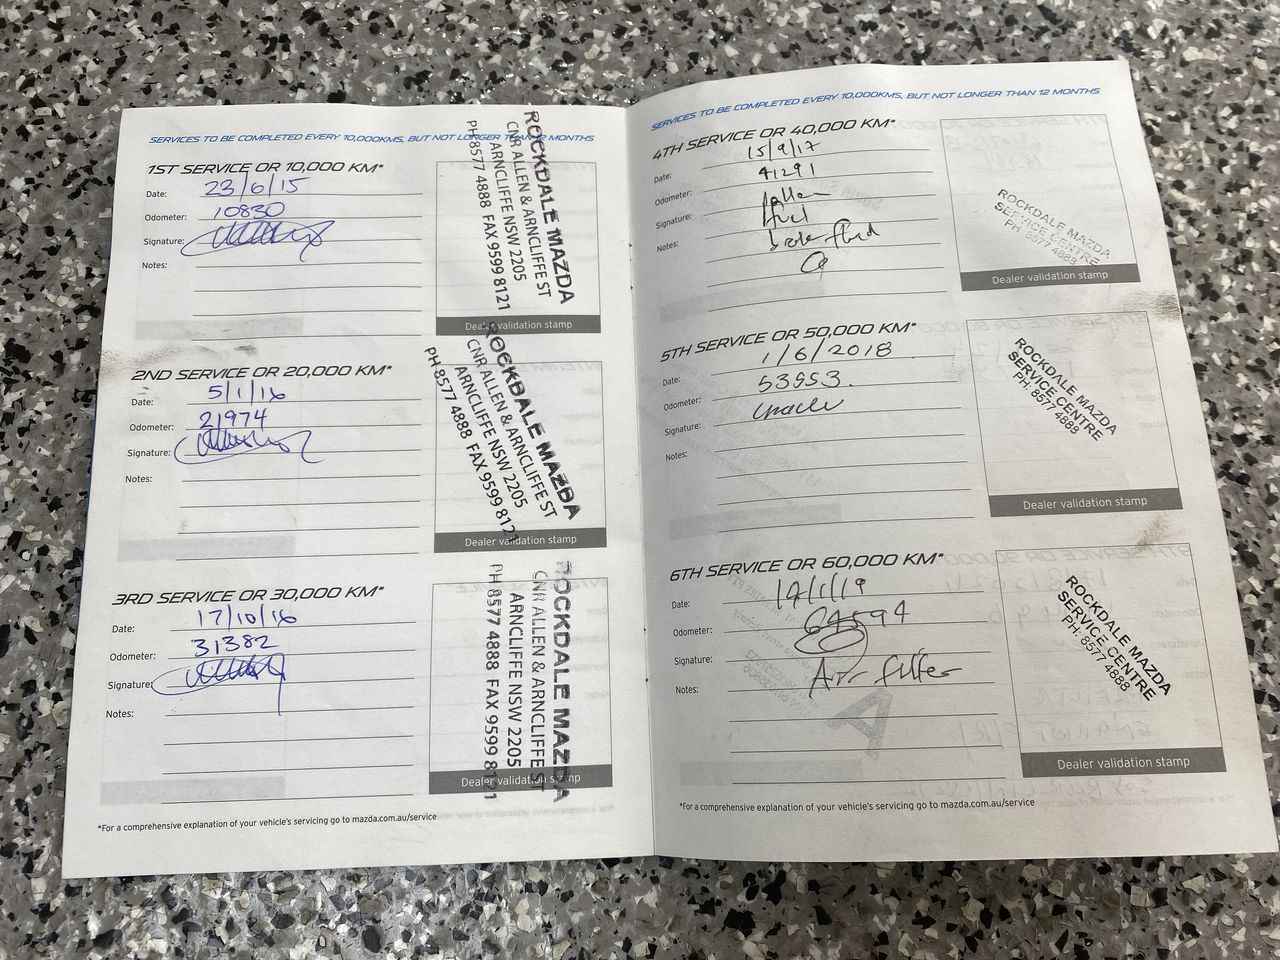 SERVICES TO BE COMPLETED EVERY 10,000KMS, BUT NOT LONGER THAN 12 MONTHS
1ST SERVICE OR 10,000 KM*
Date: 23/6/15
Odometer: 10830
Signature:
Notes:
ROCKDALE MAZDA
CNR ALLEN & ARNCLIFFE ST
ARNCLIFFE NSW 2205
PH 8577 4888 FAX 9599 8121
Dealer validation stamp
2ND SERVICE OR 20,000 KM*
Date: 5/1/16
Odometer: 21974
Signature:
Notes:
ROCKDALE MAZDA
CNR ALLEN & ARNCLIFFE ST
ARNCLIFFE NSW 2205
PH 8577 4888 FAX 9599 8121
Dealer validation stamp
3RD SERVICE OR 30,000 KM*
Date: 17/10/16
Odometer: 31382
Signature:
Notes:
ROCKDALE MAZDA
CNR ALLEN & ARNCLIFFE ST
ARNCLIFFE NSW 2205
PH 8577 4888 FAX 9599 8121
Dealer validation stamp
*For a comprehensive explanation of your vehicle's servicing go to mazda.com.au/service
SERVICES TO BE COMPLETED EVERY 10,000KMS, BUT NOT LONGER THAN 12 MONTHS
4TH SERVICE OR 40,000 KM*
Date: 15/9/17
Odometer: 41291
Signature:
Notes: fuel
fluid
ROCKDALE MAZDA
SERVICE CENTRE
PH: 8577 4888
Dealer validation stamp
5TH SERVICE OR 50,000 KM*
Date: 1/6/2018
Odometer: 53553.
Signature:
Notes:
ROCKDALE MAZDA
SERVICE CENTRE
PH: 8577 4888
Dealer validation stamp
6TH SERVICE OR 60,000 KM*
Date: 14/1/19
Odometer: 64594
Signature:
Notes: Air filter
ROCKDALE MAZDA
SERVICE CENTRE
PH: 8577 4888
Dealer validation stamp
*For a comprehensive explanation of your vehicle's servicing go to mazda.com.au/service